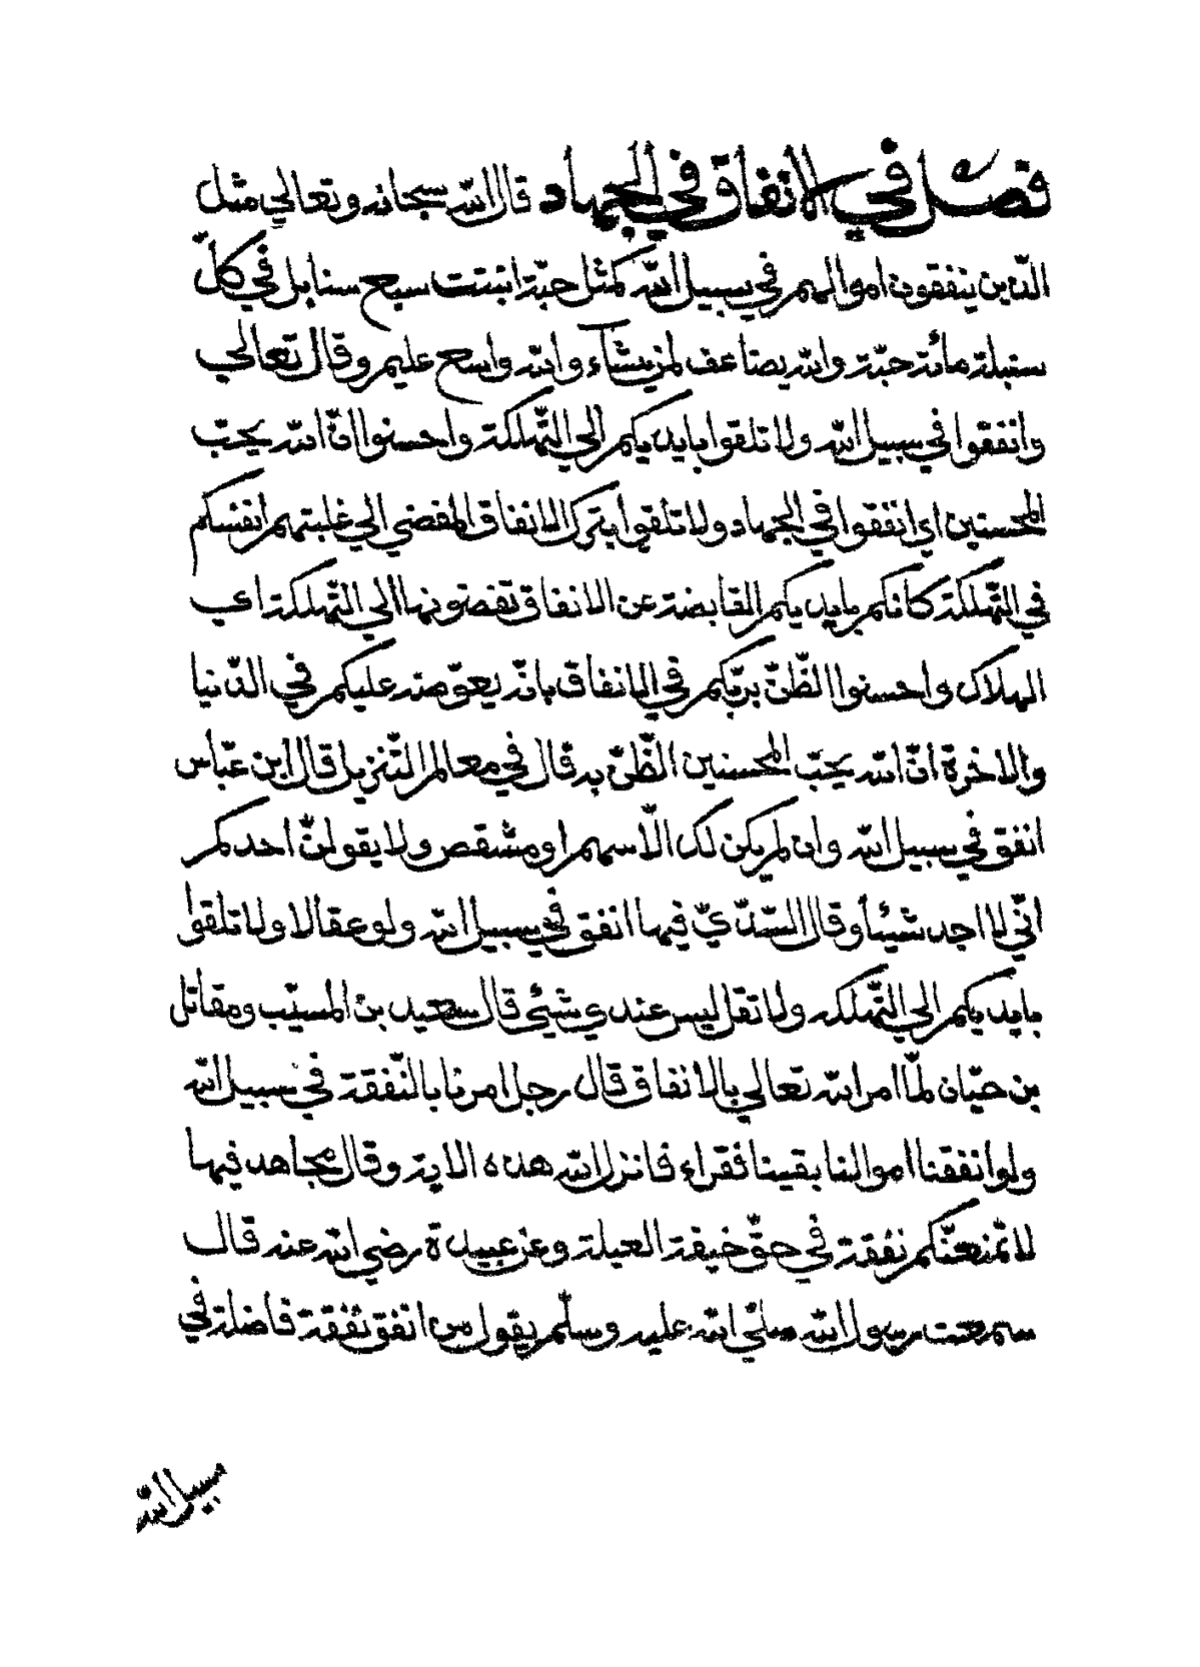 فصل في الانفاق في الجهاد قال الله سبحانه وتعالي مثل
الّذين ينفقون اموالهم في سبيل الله كمثل حبّة انبتت سبع سنابل في كلّ
سنبلة مائة حبّة والله يضاعف لمن يشآء والله واسع عليم وقال تعالي
وانفقوا في سبيل الله ولا تلقوا بايديكم الي التّهلكة واحسنوا انّ الله يحبّ
المحسنين اي انفقوا في الجهاد ولا تلقوا بترك الانفاق المفضي الي غلبتهم انفسكم
في التّهلكة كانكم بايديكم القابضة عن الانفاق تفضونها الي التّهلكة اي
الهلاك واحسنوا الظّنّ بربّكم في الانفاق بانّه يعوّضه عليكم في الدّنيا
والاخرة انّ الله يحبّ المحسنين الظّنّ به قال في معالم التّنزيل قال ابن عبّاس
انفق في سبيل الله وان لم يكن لك الّا سهم او مشقص ولا يقولنّ احدكم
انّي لا اجد شيئا وقال السّدّيّ فيها انفق في سبيل الله ولو عقالا ولا تلقوا
بايديكم الي التّهلكه ولا تقل ليس عندي شيئ قال سعيد بن المسيّب ومقاتل
بن حيّان لمّا امر الله تعالي بالانفاق قال رجل امرنا بالنّفقة في سبيل الله
ولو انفقنا اموالنا بقينا فقراء فانزل الله هذه الاية وقال مجاهد فيها
لا تمنعنّكم نفقة في حقّ خيفة العيلة وعن عبيدة رضي الله عنه قال
سمعت رسول الله صلّي الله عليه وسلّم يقول من انفق نفقة فاضلة في
سبيل الله